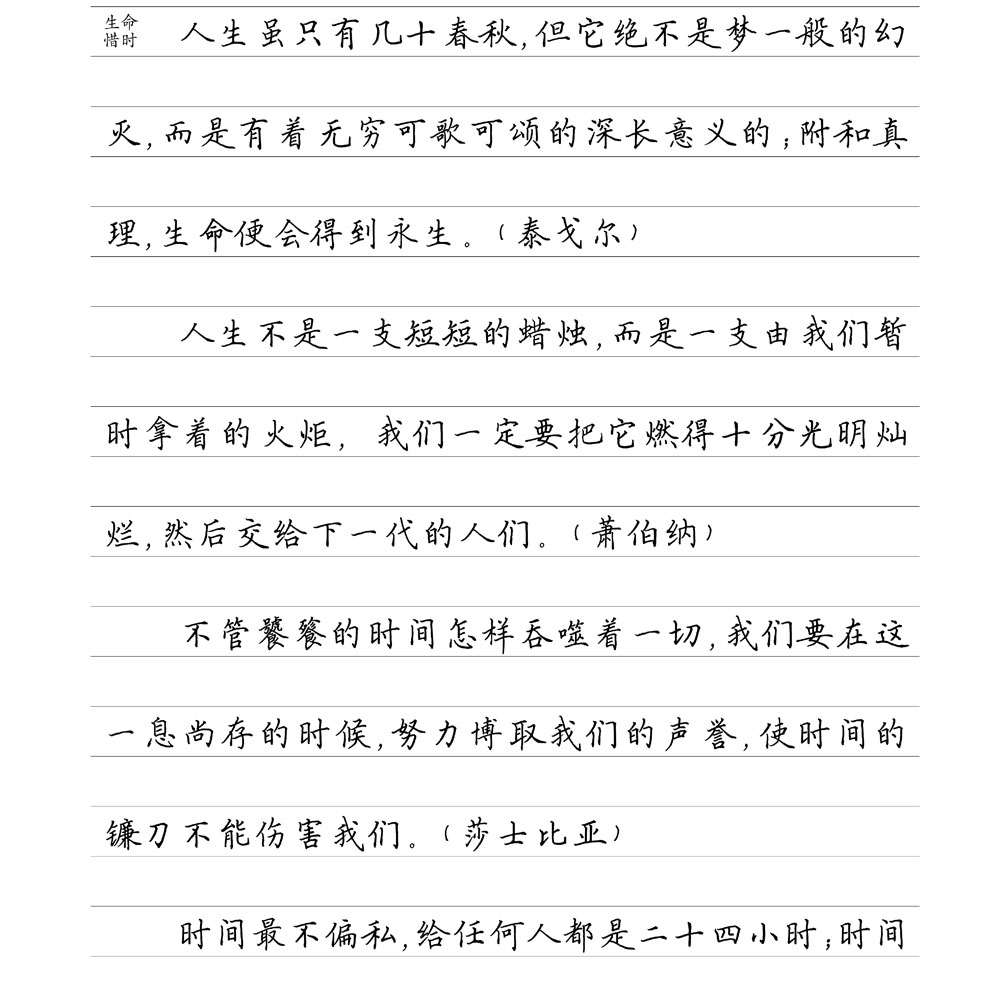 生命
惜时
人生虽只有几十春秋,但它绝不是梦一般的幻
灭,而是有着无穷可歌可颂的深长意义的;附和真
理,生命便会得到永生。(泰戈尔)
人生不是一支短短的蜡烛,而是一支由我们暂
时拿着的火炬, 我们一定要把它燃得十分光明灿
烂,然后交给下一代的人们。(萧伯纳)
不管饕餮的时间怎样吞噬着一切,我们要在这
一息尚存的时候,努力博取我们的声誉,使时间的
镰刀不能伤害我们。(莎士比亚)
时间最不偏私,给任何人都是二十四小时;时间